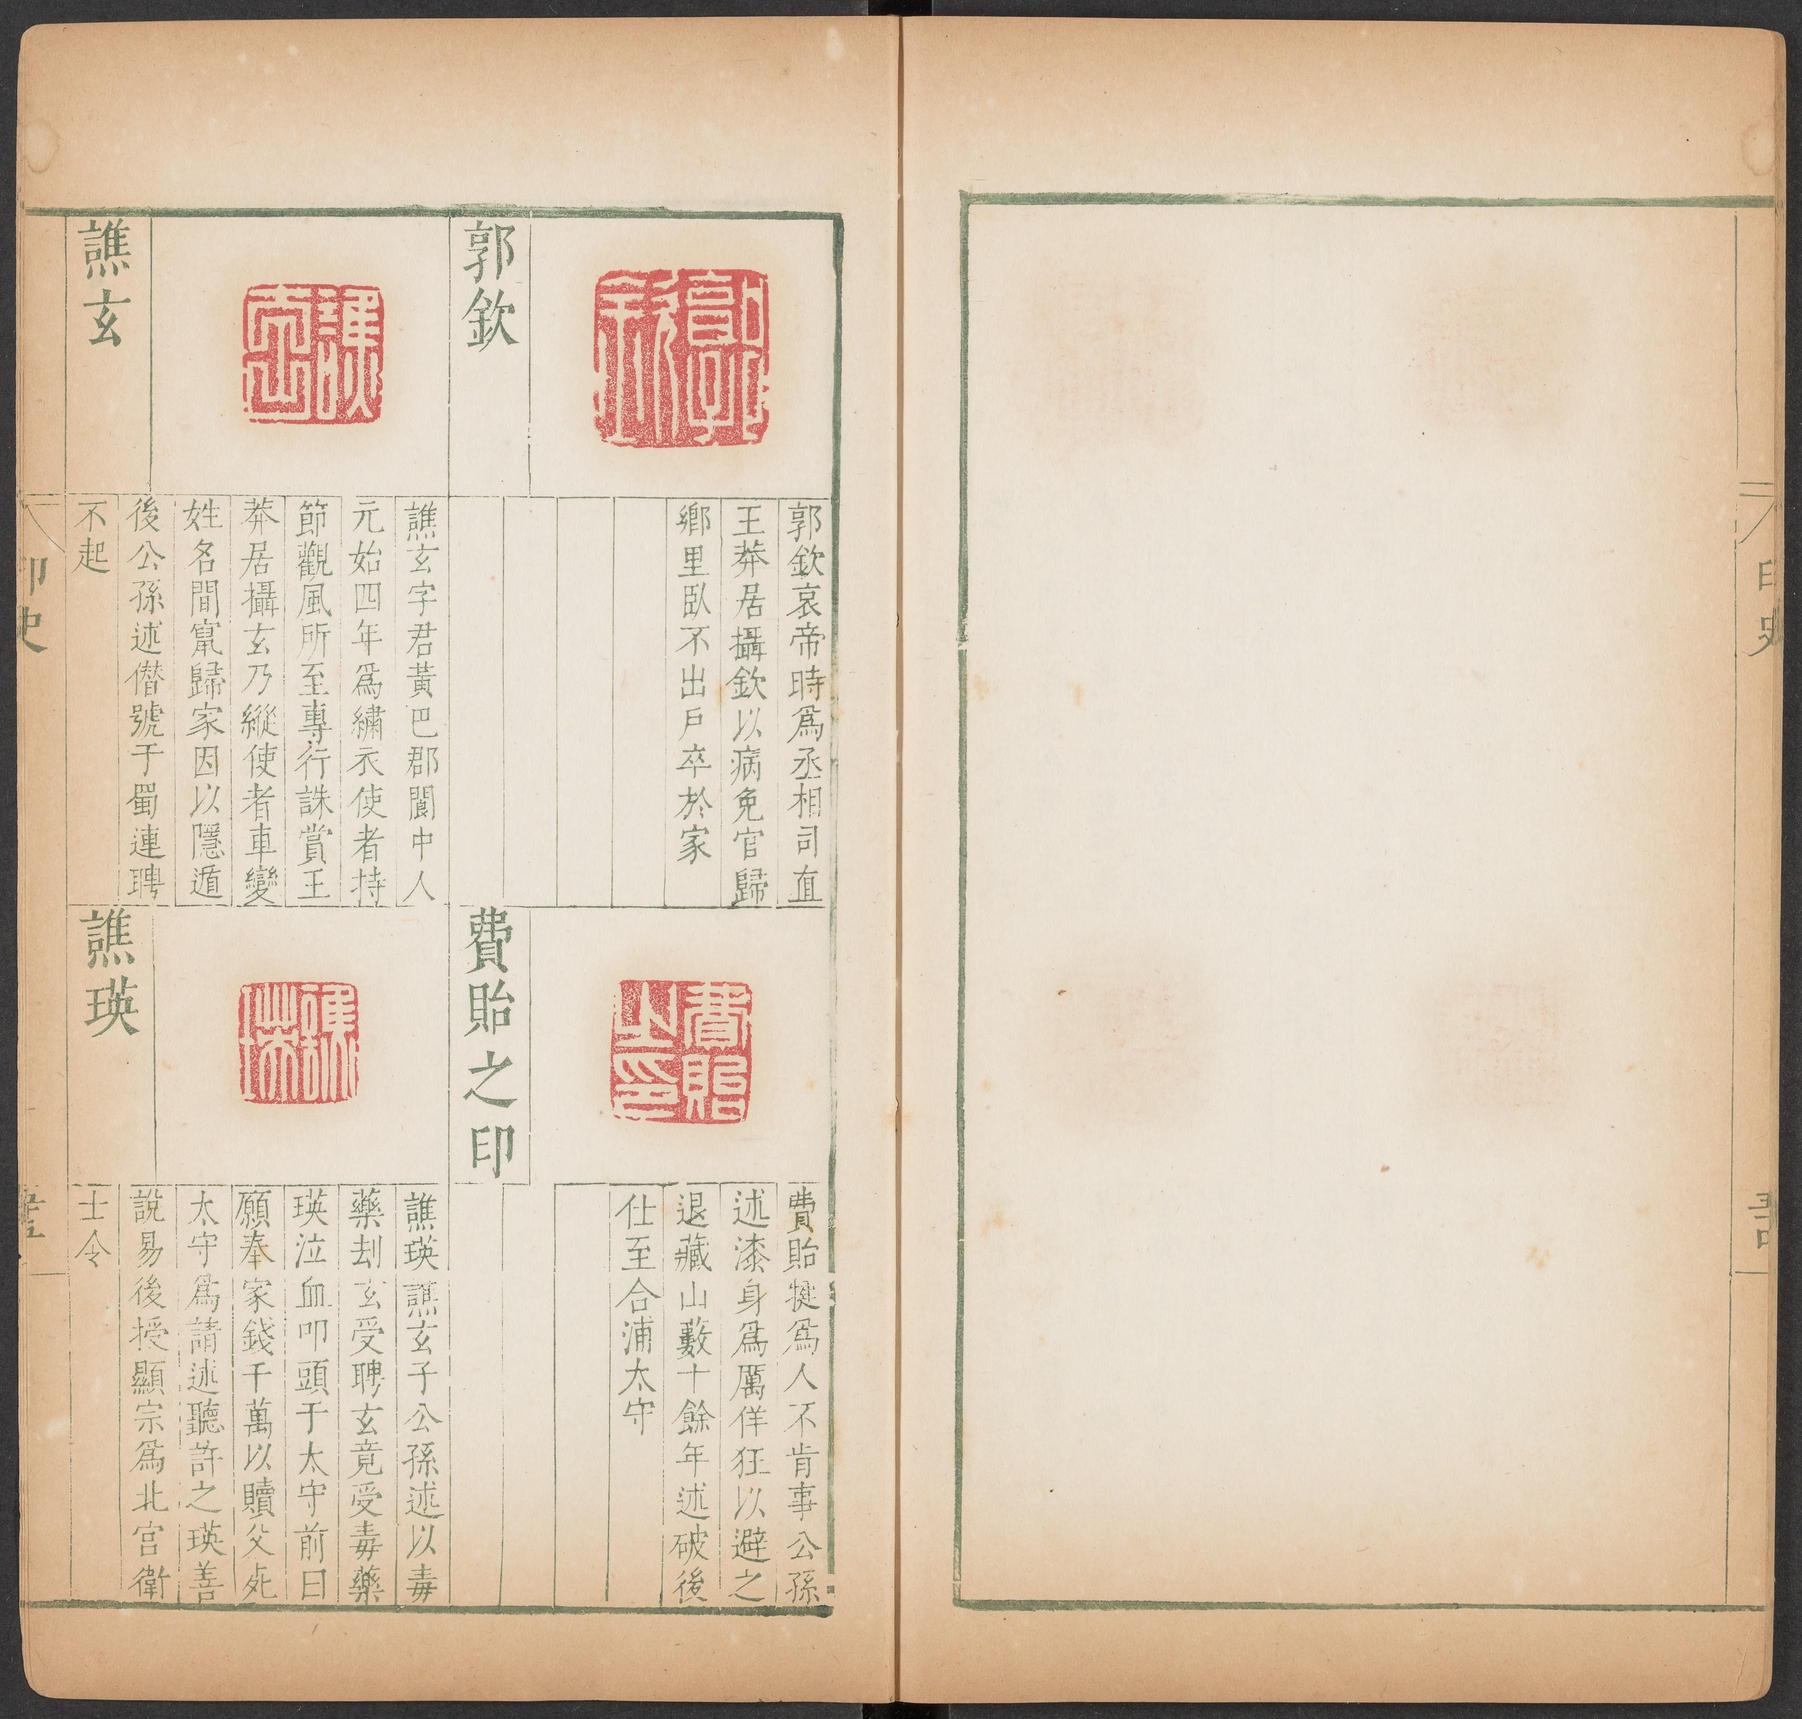 郭欽
郭欽哀帝時爲丞相司直
王莽居攝欽以病免官歸
鄉里臥不出戶卒於家
譙玄
譙玄字君黃巴郡閬中人
元始四年爲繡衣使者持
節觀風所至專行誅賞王
莽居攝玄乃縱使者車變
姓名間竄歸家因以隱遁
後公孫述僭號于蜀連聘
不起
費貽之印
費貽犍爲人不肯事公孫
述漆身爲厲佯狂以避之
退藏山藪十餘年述破後
仕至合浦太守
譙瑛
譙瑛譙玄子公孫述以毒
藥刦玄受聘玄竟受毒藥
瑛泣血叩頭于太守前曰
願奉家錢千萬以贖父死
太守爲請述聽許之瑛善
說易後授顯宗爲北宮衛
士令
印史